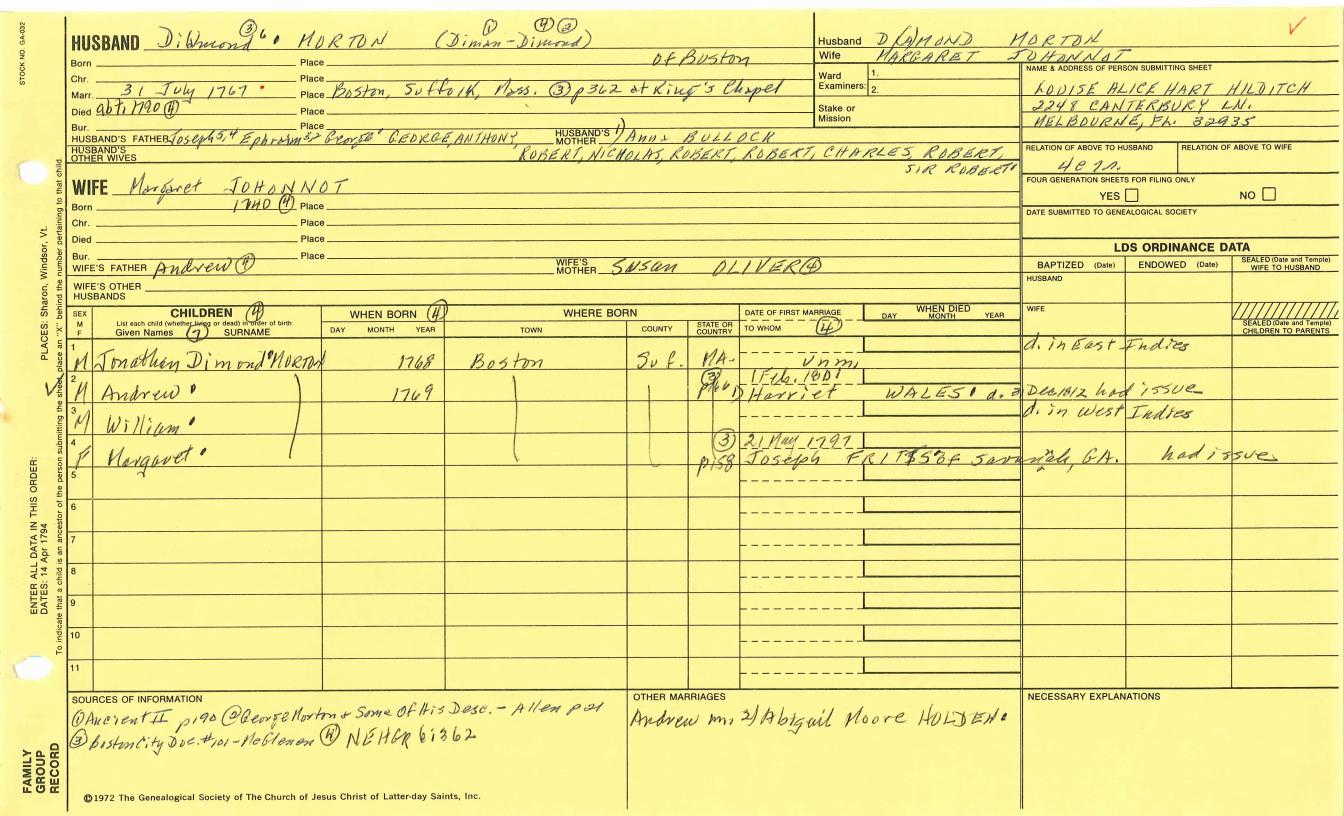 STOCK NO. GA-032
HUSBAND Diamond ③ 6 MORTON (Diman-Dimond) ① ④ ②
Born Place of Boston
Chr. Place
Marr. 31 July 1767 Place Boston, Suffolk, Mass. ③ p362 at King's Chapel
Died abt. 1790 ④ Place
Bur. Place
HUSBAND'S FATHER Joseph 5,4 Ephraim 3,2 George 1 GEORGE, ANTHONY, HUSBAND'S MOTHER 1) Ann BULLOCK
HUSBAND'S OTHER WIVES ROBERT, NICHOLAS, ROBERT, ROBERT, CHARLES, ROBERT,
SIR ROBERT
Husband DIAMOND MORTON
Wife MARGARET JOHONNOT
Ward Examiners: 1.
2.
Stake or Mission
NAME & ADDRESS OF PERSON SUBMITTING SHEET
LOUISE ALICE HART HILDITCH
2248 CANTERBURY LN.
MELBOURNE, FL. 32935
RELATION OF ABOVE TO HUSBAND RELATION OF ABOVE TO WIFE
FOUR GENERATION SHEETS FOR FILING ONLY
YES NO
DATE SUBMITTED TO GENEALOGICAL SOCIETY
WIFE Margaret JOHONNOT
Born 1740 ④ Place
Chr. Place
Died Place
Bur. Place
WIFE'S FATHER Andrew ④ WIFE'S MOTHER Susan OLIVER ④
WIFE'S OTHER HUSBANDS
LDS ORDINANCE DATA
BAPTIZED (Date) ENDOWED (Date) SEALED (Date and Temple) WIFE TO HUSBAND
HUSBAND
WIFE
SEALED (Date and Temple) CHILDREN TO PARENTS
SEX M F CHILDREN ④ List each child (whether living or dead) in order of birth Given Names SURNAME
WHEN BORN ④ DAY MONTH YEAR
WHERE BORN TOWN COUNTY STATE OR COUNTRY
DATE OF FIRST MARRIAGE TO WHOM ④
WHEN DIED DAY MONTH YEAR
1 M Jonathan Dimond MORTON 1768 Boston Suf. MA. unm. d. in East Indies
2 M Andrew 1769 ③ 1 Feb. 1801 Harriet WALES d. 3 Dec 1812 had issue
3 M William d. in West Indies
4 F Margaret ③ p158 21 May 1797 Joseph FRITSS of Savannah, GA. had issue
5
6
7
8
9
10
11
SOURCES OF INFORMATION
① Ancient II p190 ② George Morton & Some Of His Desc. - Allen p21
③ Boston City Doc. #101 - McGlenen ④ NEHGR 61362
OTHER MARRIAGES
Andrew m. 2) Abigail Moore HOLDEN
NECESSARY EXPLANATIONS
©1972 The Genealogical Society of The Church of Jesus Christ of Latter-day Saints, Inc.
FAMILY GROUP RECORD
ENTER ALL DATA IN THIS ORDER:
DATES: 14 Apr 1794 PLACES: Sharon, Windsor, Vt.
To indicate that a child is an ancestor of the person submitting the sheet, place an "X" behind the number pertaining to that child.